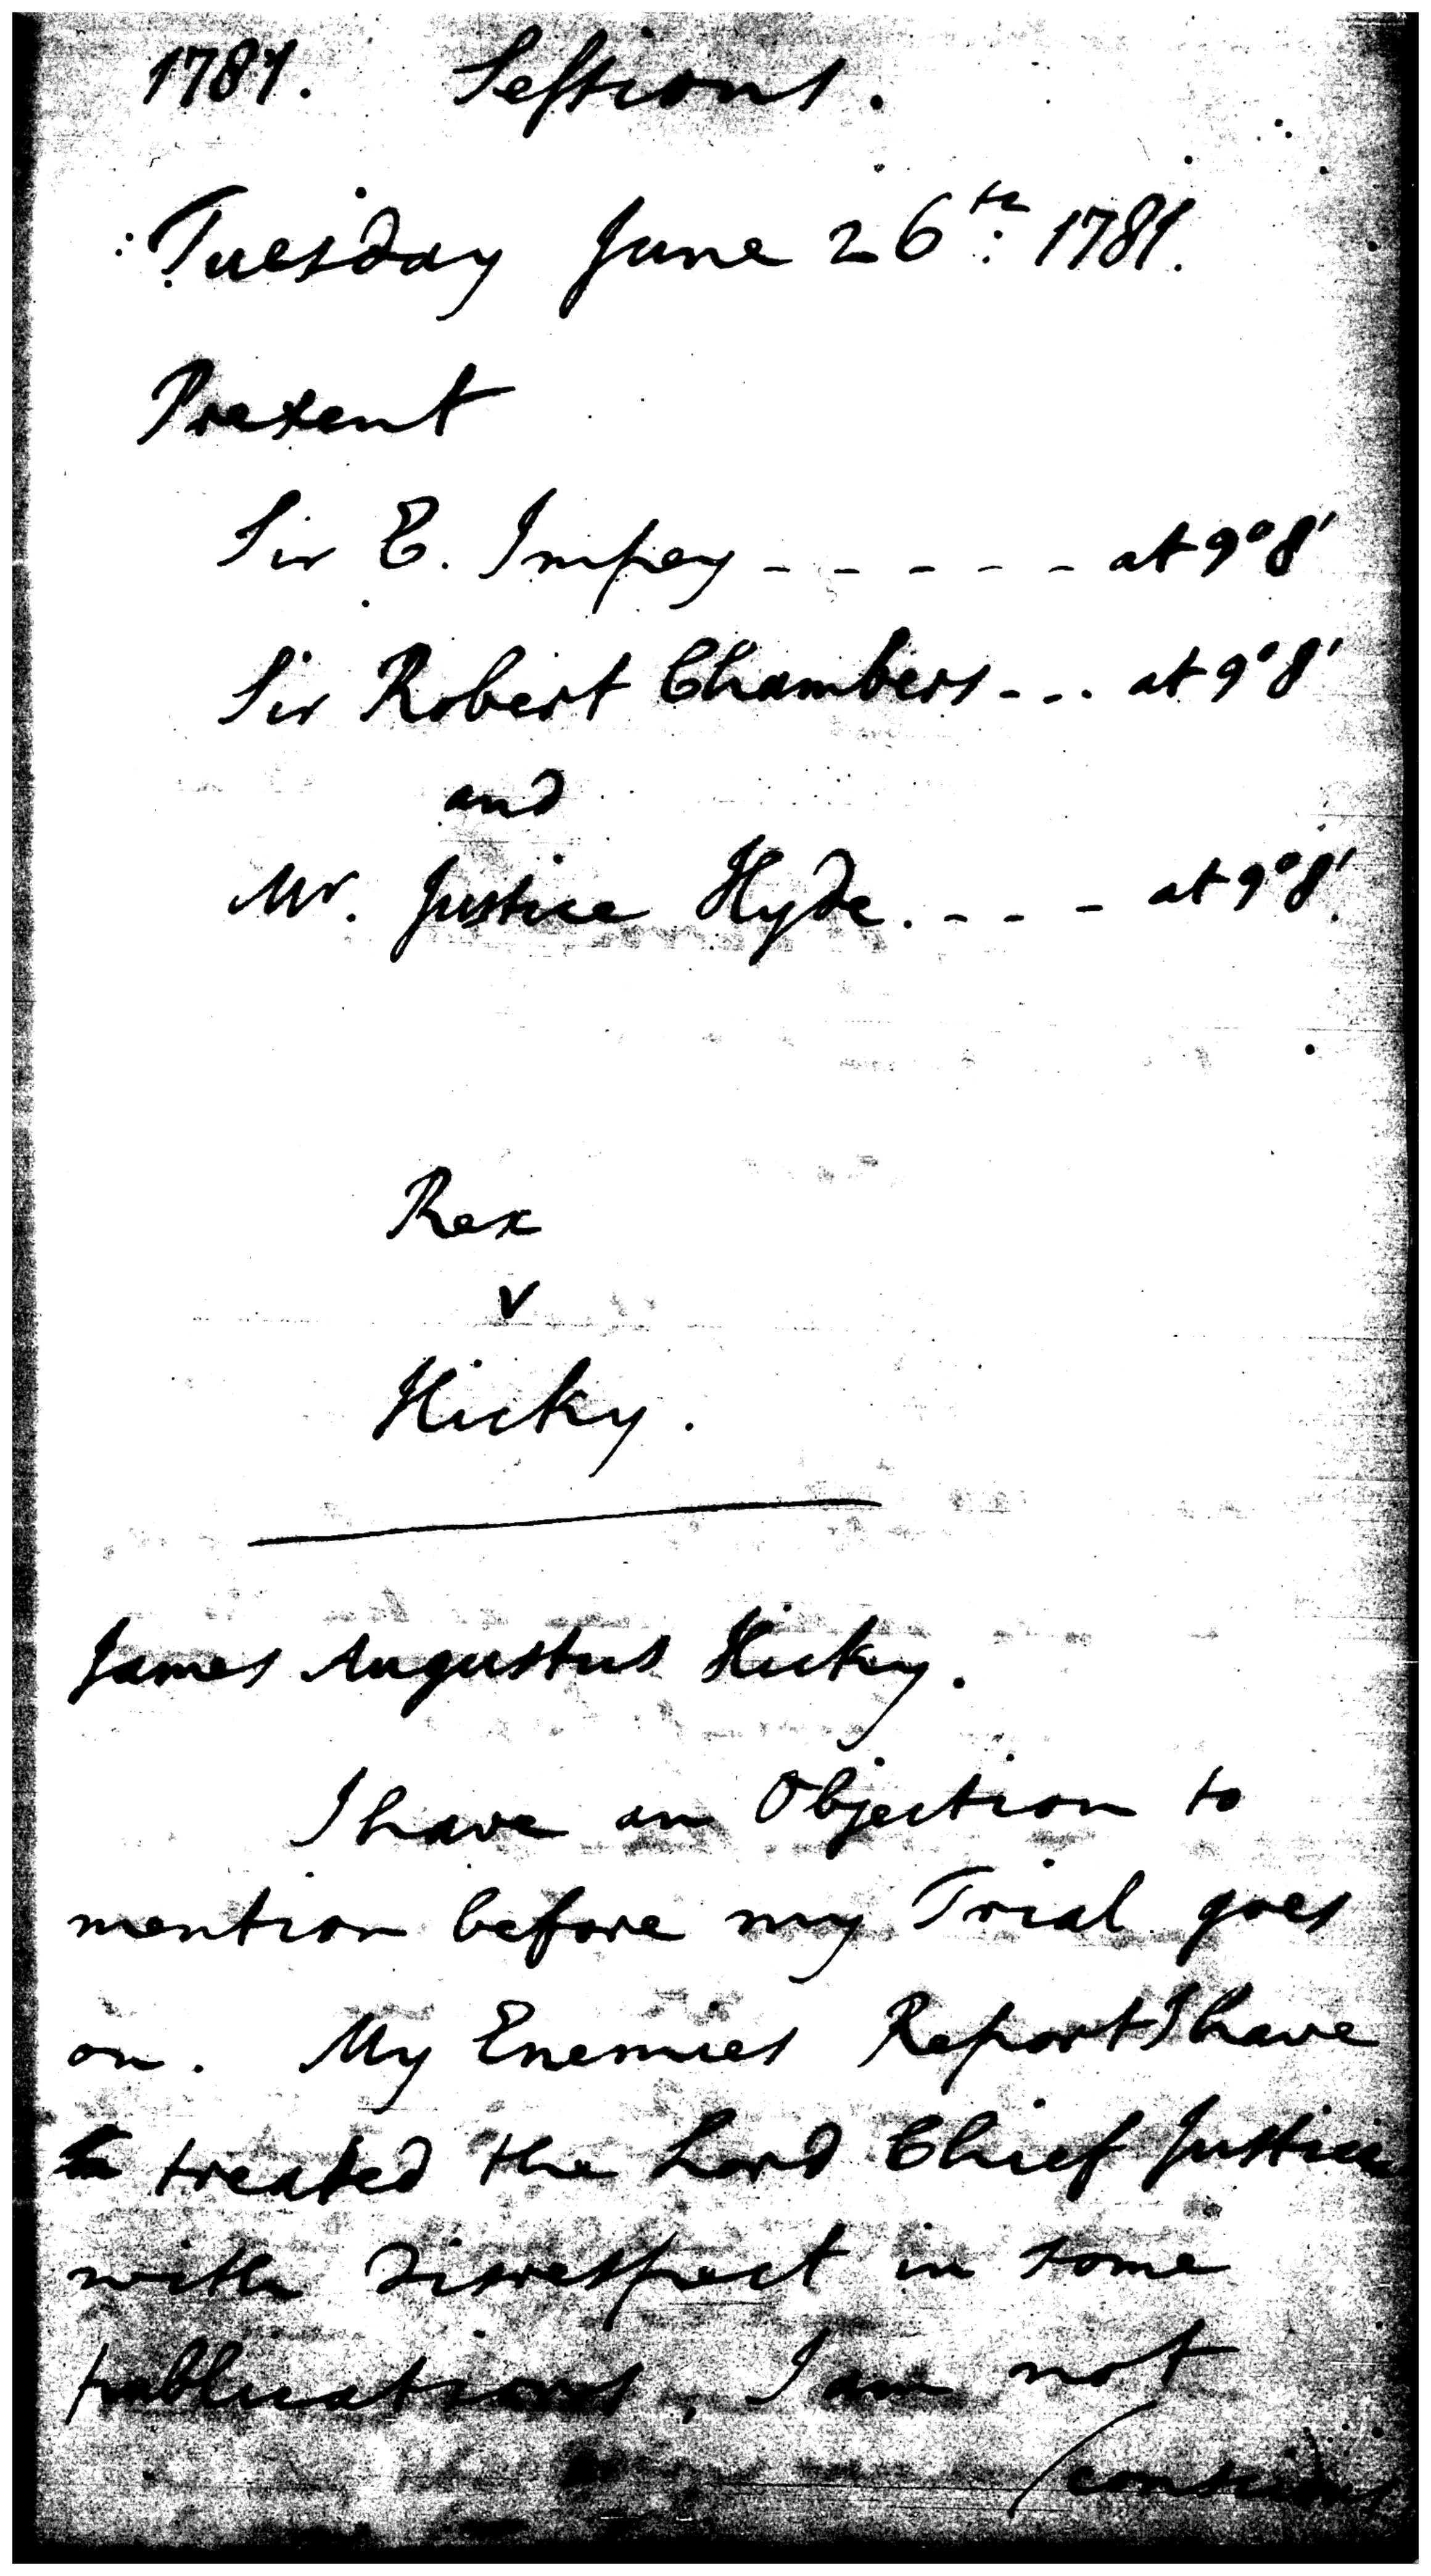 1781. Sessions.
Tuesday June 26th. 1781.
Present
Sir E. Impey - - - - - at 9° 8'
Sir Robert Chambers - - - at 9° 8'
and
Mr. Justice Hyde. - - - at 9° 8'
Rex
v
Hicky.
James Augustus Hicky.
I have an Objection to
mention before my Trial goes
on. My Enemies Report I have
treated the Lord Chief Justice
with disrespect in some
publications. I am not
(conscious